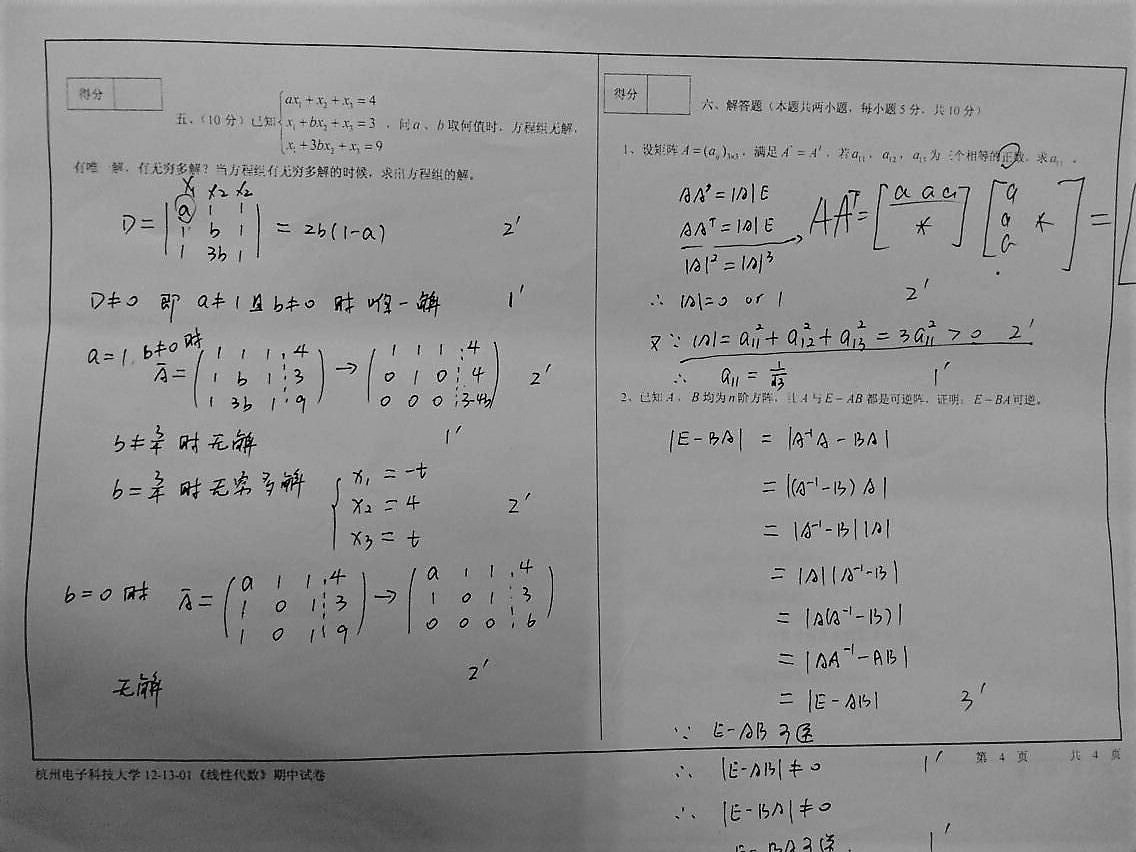 得分
五、(10分)已知{ax₁+x₂+x₃=4
x₁+bx₂+x₃=3
x₁+3bx₂+x₃=9
,问a、b取何值时,方程组无解,
有唯一解,有无穷多解?当方程组有无穷多解的时候,求出方程组的解。
x₁ x₂ x₂
D = | a 1 1 | = 2b(1-a) 2'
| 1 b 1 |
| 1 3b 1 |
D≠0 即 a≠1且b≠0 时 唯一解 1'
a=1, b≠0时
Ā = ( 1 1 1 ⋮ 4 ) → ( 1 1 1 ⋮ 4 ) 2'
( 1 b 1 ⋮ 3 ) ( 0 1 0 ⋮ 4 )
( 1 3b 1 ⋮ 9 ) ( 0 0 0 ⋮ 3-4b )
b≠3/4 时 无解 1'
b=3/4 时 无穷多解 { x₁ = -t
x₂ = 4 2'
x₃ = t
b=0 时 Ā = ( a 1 1 ⋮ 4 ) → ( a 1 1 ⋮ 4 )
( 1 0 1 ⋮ 3 ) ( 1 0 1 ⋮ 3 )
( 1 0 1 ⋮ 9 ) ( 0 0 0 ⋮ 6 )
无解 2'
杭州电子科技大学12-13-01《线性代数》期中试卷
得分
六、解答题(本题共两小题,每小题5分,共10分)
1、设矩阵A=(aᵢⱼ)₃ₓ₃,满足A*=Aᵀ,若a₁₁,a₁₂,a₁₃为三个相等的正数,求a₁₁。
AA*=|A|E
AAᵀ=|A|E
AAᵀ = [ a a a ] [ a ] =
[ * ] [ a * ]
[ a ]
|A|²=|A|³
∴ |A|=0 or 1 2'
又∵ |A|=a₁₁²+a₁₂²+a₁₃²=3a₁₁²>0 2'
∴ a₁₁ = 1/√3 1'
2、已知A、B均为n阶方阵,且A与E-AB都是可逆阵,证明:E-BA可逆。
|E-BA| = |A⁻¹A-BA|
= |(A⁻¹-B)A|
= |A⁻¹-B||A|
= |A||A⁻¹-B|
= |A(A⁻¹-B)|
= |AA⁻¹-AB|
= |E-AB| 3'
∵ E-AB可逆
∴ |E-AB|≠0 1'
∴ |E-BA|≠0
E-BA可逆. 1'
第 4 页 共 4 页